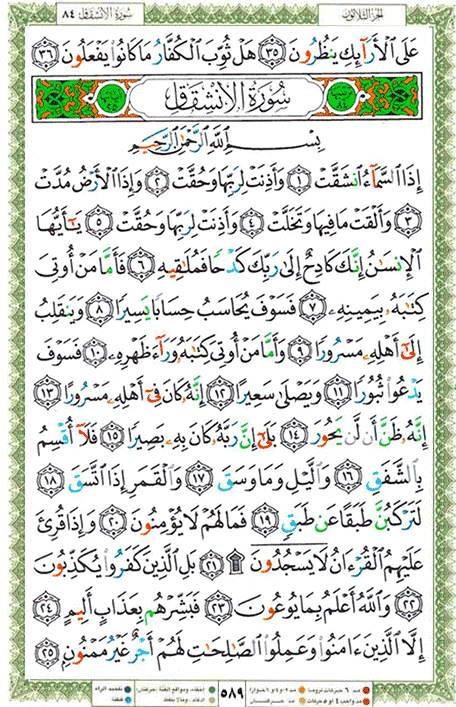 سُورَةُ الانشِقَاقِ ٨٤
الجزء الثلاثون
عَلَى ٱلْأَرَآئِكِ يَنظُرُونَ ٣٥ هَلْ ثُوِّبَ ٱلْكُفَّارُ مَا كَانُوا۟ يَفْعَلُونَ ٣٦
سُورَةُ الانشِقَاقِ
بِسْمِ ٱللَّهِ ٱلرَّحْمَٰنِ ٱلرَّحِيمِ
إِذَا ٱلسَّمَآءُ ٱنشَقَّتْ ١ وَأَذِنَتْ لِرَبِّهَا وَحُقَّتْ ٢ وَإِذَا ٱلْأَرْضُ مُدَّتْ
٣ وَأَلْقَتْ مَا فِيهَا وَتَخَلَّتْ ٤ وَأَذِنَتْ لِرَبِّهَا وَحُقَّتْ ٥ يَٰٓأَيُّهَا
ٱلْإِنسَٰنُ إِنَّكَ كَادِحٌ إِلَىٰ رَبِّكَ كَدْحًا فَمُلَٰقِيهِ ٦ فَأَمَّا مَنْ أُوتِىَ
كِتَٰبَهُۥ بِيَمِينِهِۦ ٧ فَسَوْفَ يُحَاسَبُ حِسَابًا يَسِيرًا ٨ وَيَنقَلِبُ
إِلَىٰٓ أَهْلِهِۦ مَسْرُورًا ٩ وَأَمَّا مَنْ أُوتِىَ كِتَٰبَهُۥ وَرَآءَ ظَهْرِهِۦ ١٠ فَسَوْفَ
يَدْعُوا۟ ثُبُورًا ١١ وَيَصْلَىٰ سَعِيرًا ١٢ إِنَّهُۥ كَانَ فِىٓ أَهْلِهِۦ مَسْرُورًا ١٣
إِنَّهُۥ ظَنَّ أَن لَّن يَحُورَ ١٤ بَلَىٰٓ إِنَّ رَبَّهُۥ كَانَ بِهِۦ بَصِيرًا ١٥ فَلَآ أُقْسِمُ
بِٱلشَّفَقِ ١٦ وَٱلَّيْلِ وَمَا وَسَقَ ١٧ وَٱلْقَمَرِ إِذَا ٱتَّسَقَ ١٨
لَتَرْكَبُنَّ طَبَقًا عَن طَبَقٍ ١٩ فَمَا لَهُمْ لَا يُؤْمِنُونَ ٢٠ وَإِذَا قُرِئَ
عَلَيْهِمُ ٱلْقُرْءَانُ لَا يَسْجُدُونَ ۩ ٢١ بَلِ ٱلَّذِينَ كَفَرُوا۟ يُكَذِّبُونَ
٢٢ وَٱللَّهُ أَعْلَمُ بِمَا يُوعُونَ ٢٣ فَبَشِّرْهُم بِعَذَابٍ أَلِيمٍ ٢٤
إِلَّا ٱلَّذِينَ ءَامَنُوا۟ وَعَمِلُوا۟ ٱلصَّٰلِحَٰتِ لَهُمْ أَجْرٌ غَيْرُ مَمْنُونٍۭ ٢٥
٥٨٩